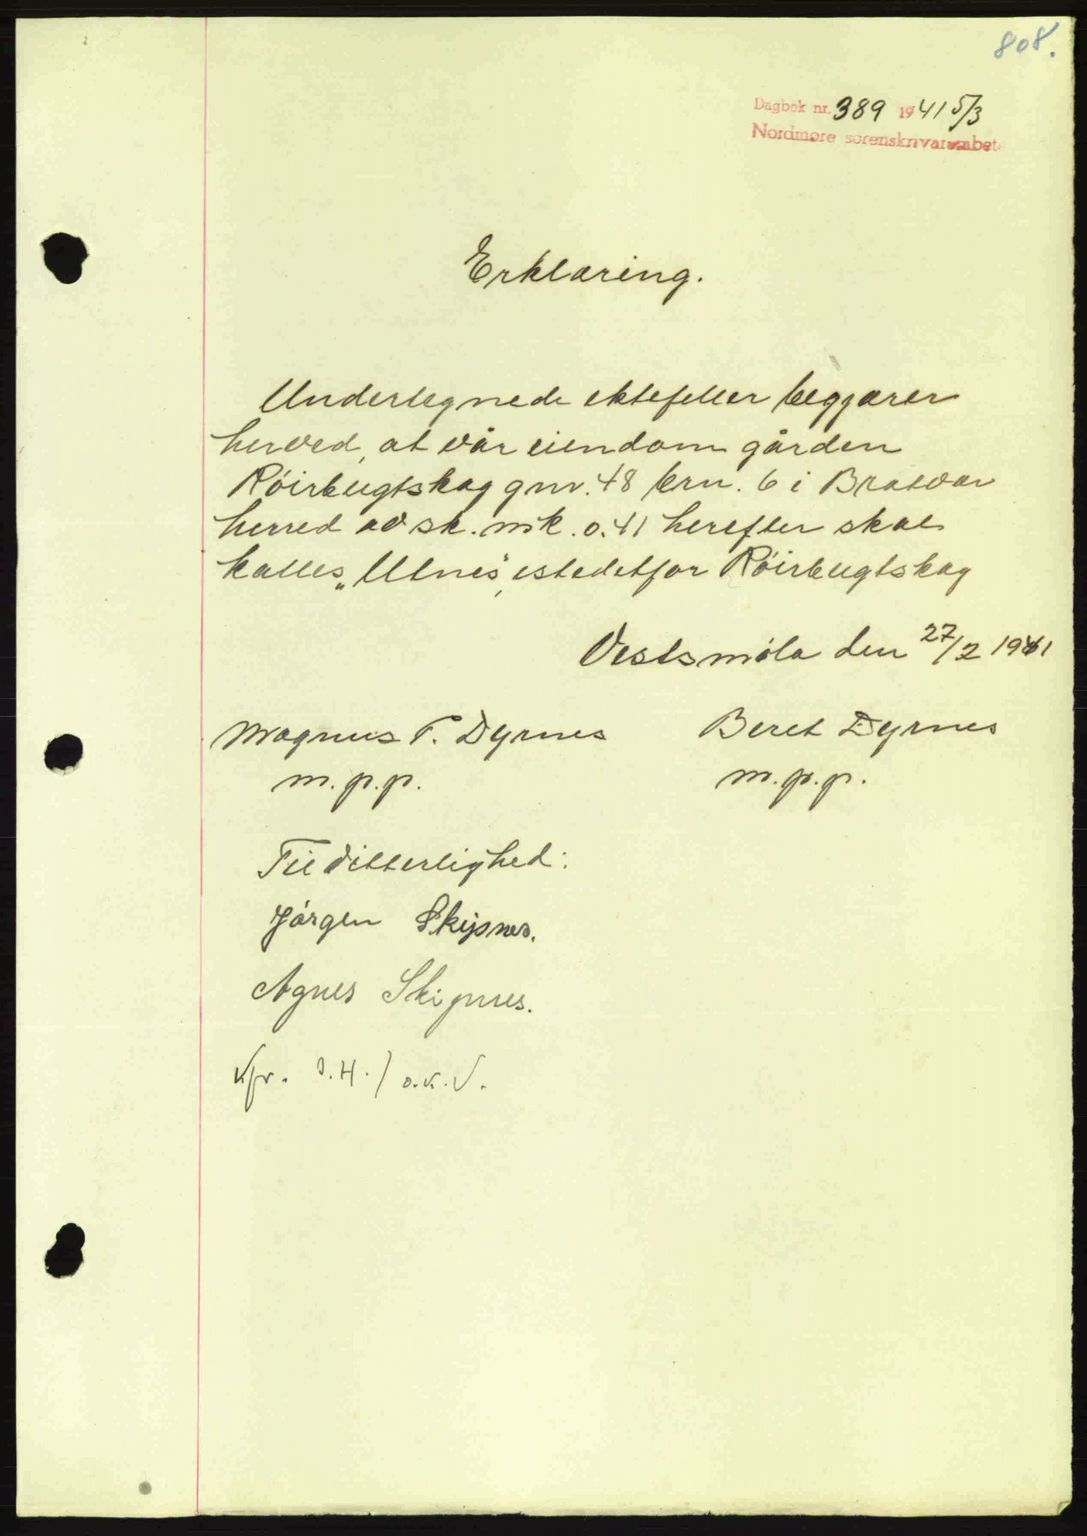 808.
Dagbok nr. 389 1941 5/3
Nordmøre sorenskriverembete
Erklæring.
Undertegnede ektefeller beggjærer
herved, at vår eiendom gården
Röirbugtskag gnr. 48 brn. 6 i Bratvær
herred av sk. mk. 0.41 herefter skal
kalles „Ulnes“, istedetfor Röirbugtskag
Vestsmöla den 27/2 1941
Magnus T. Dyrnes Beret Dyrnes
m.p.p. m.p.p.
Til vitterlighed:
Jörgen Skipnes.
Agnes Skipnes.
Kfr. J.H. / O.K.V.